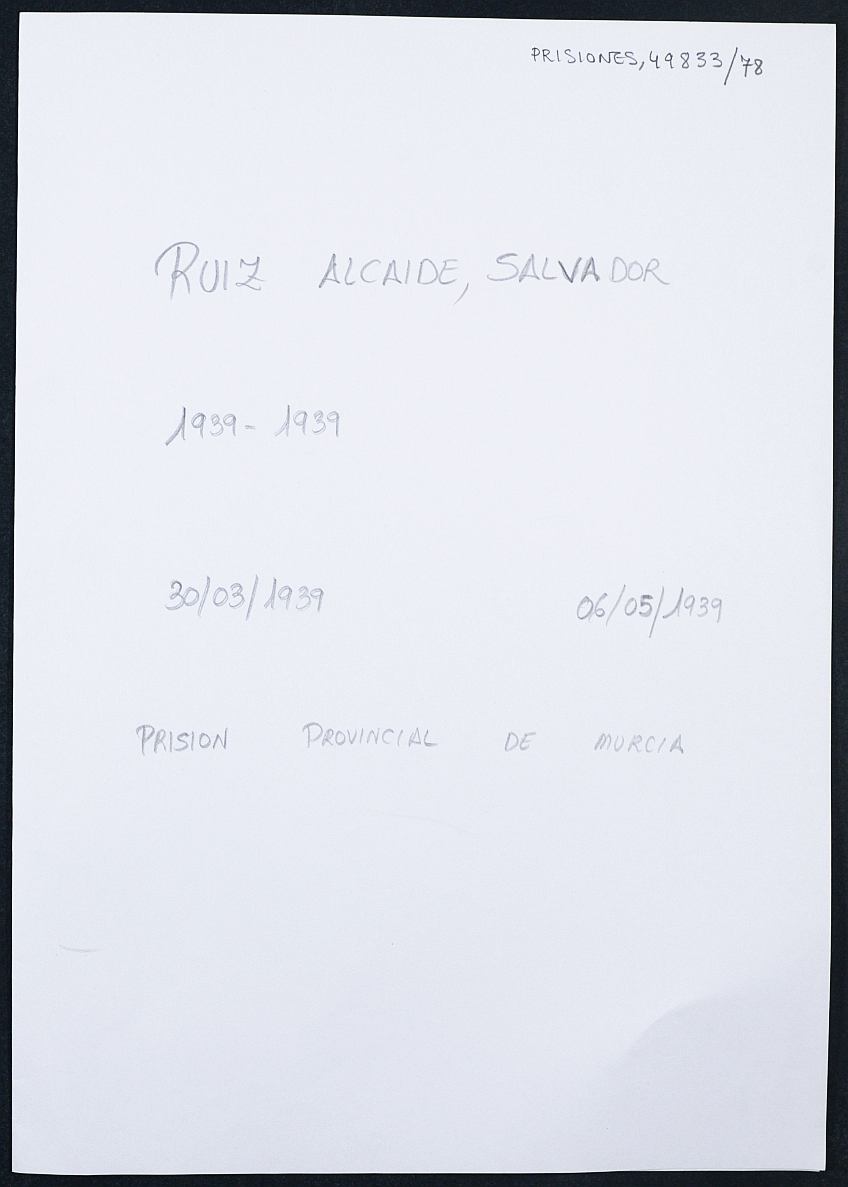 PRISIONES, 49833/78
RUIZ ALCAIDE, SALVADOR
1939 - 1939
30/03/1939 06/05/1939
PRISION PROVINCIAL DE MURCIA